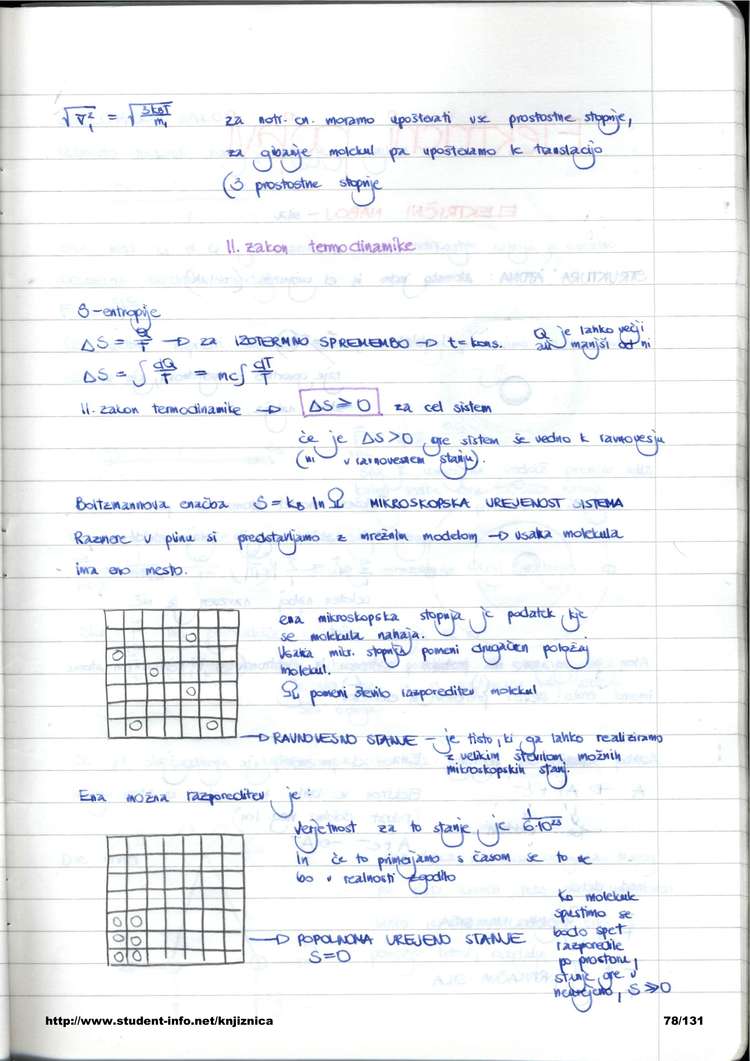 √v̅₁² = √3k_BT/m₁
za notr. en. moramo upoštevati vse prostostne stopnje,
za gibanje molekul pa upoštevamo le translacijo
(3 prostostne stopnje
II. zakon termodinamike
S-entropije
ΔS = Q/T → za IZOTERMNO SPREMEMBO → t = kons. Q je lahko večji ali manjši od ni
ΔS = ∫ dQ/T = mc∫ dT/T
II. zakon termodinamike → ΔS ≥ 0 za cel sistem
če je ΔS>0, gre sistem še vedno k ravnovesju
(ni v ravnovesnem stanju).
Boltzmannova enačba S = k_B ln Ω MIKROSKOPSKA UREJENOST SISTEMA
Razmere v plinu si predstavljamo z mrežnim modelom → vsaka molekula
ima eno mesto.
ena mikroskopska stopnja je podatek, kje
se molekula nahaja.
Vsaka mikr. stopnja pomeni drugačen položaj
molekul.
Ω pomeni število razporeditev molekul
→ RAVNOVESNO STANJE – je tisto, ki ga lahko realiziramo
z velikim številom možnih
mikroskopskih stanj.
Ena možna razporeditev je:
Verjetnost za to stanje je 1/6·10²³
In če to primerjamo s časom se to ne
bo v realnosti zgodilo
→ POPOLNOMA UREJENO STANJE
S=0
Ko molekule
spustimo se
bodo spet
razporedile
po prostoru,
stanje gre v
neurejeno, S≫0
http://www.student-info.net/knjiznica
78/131